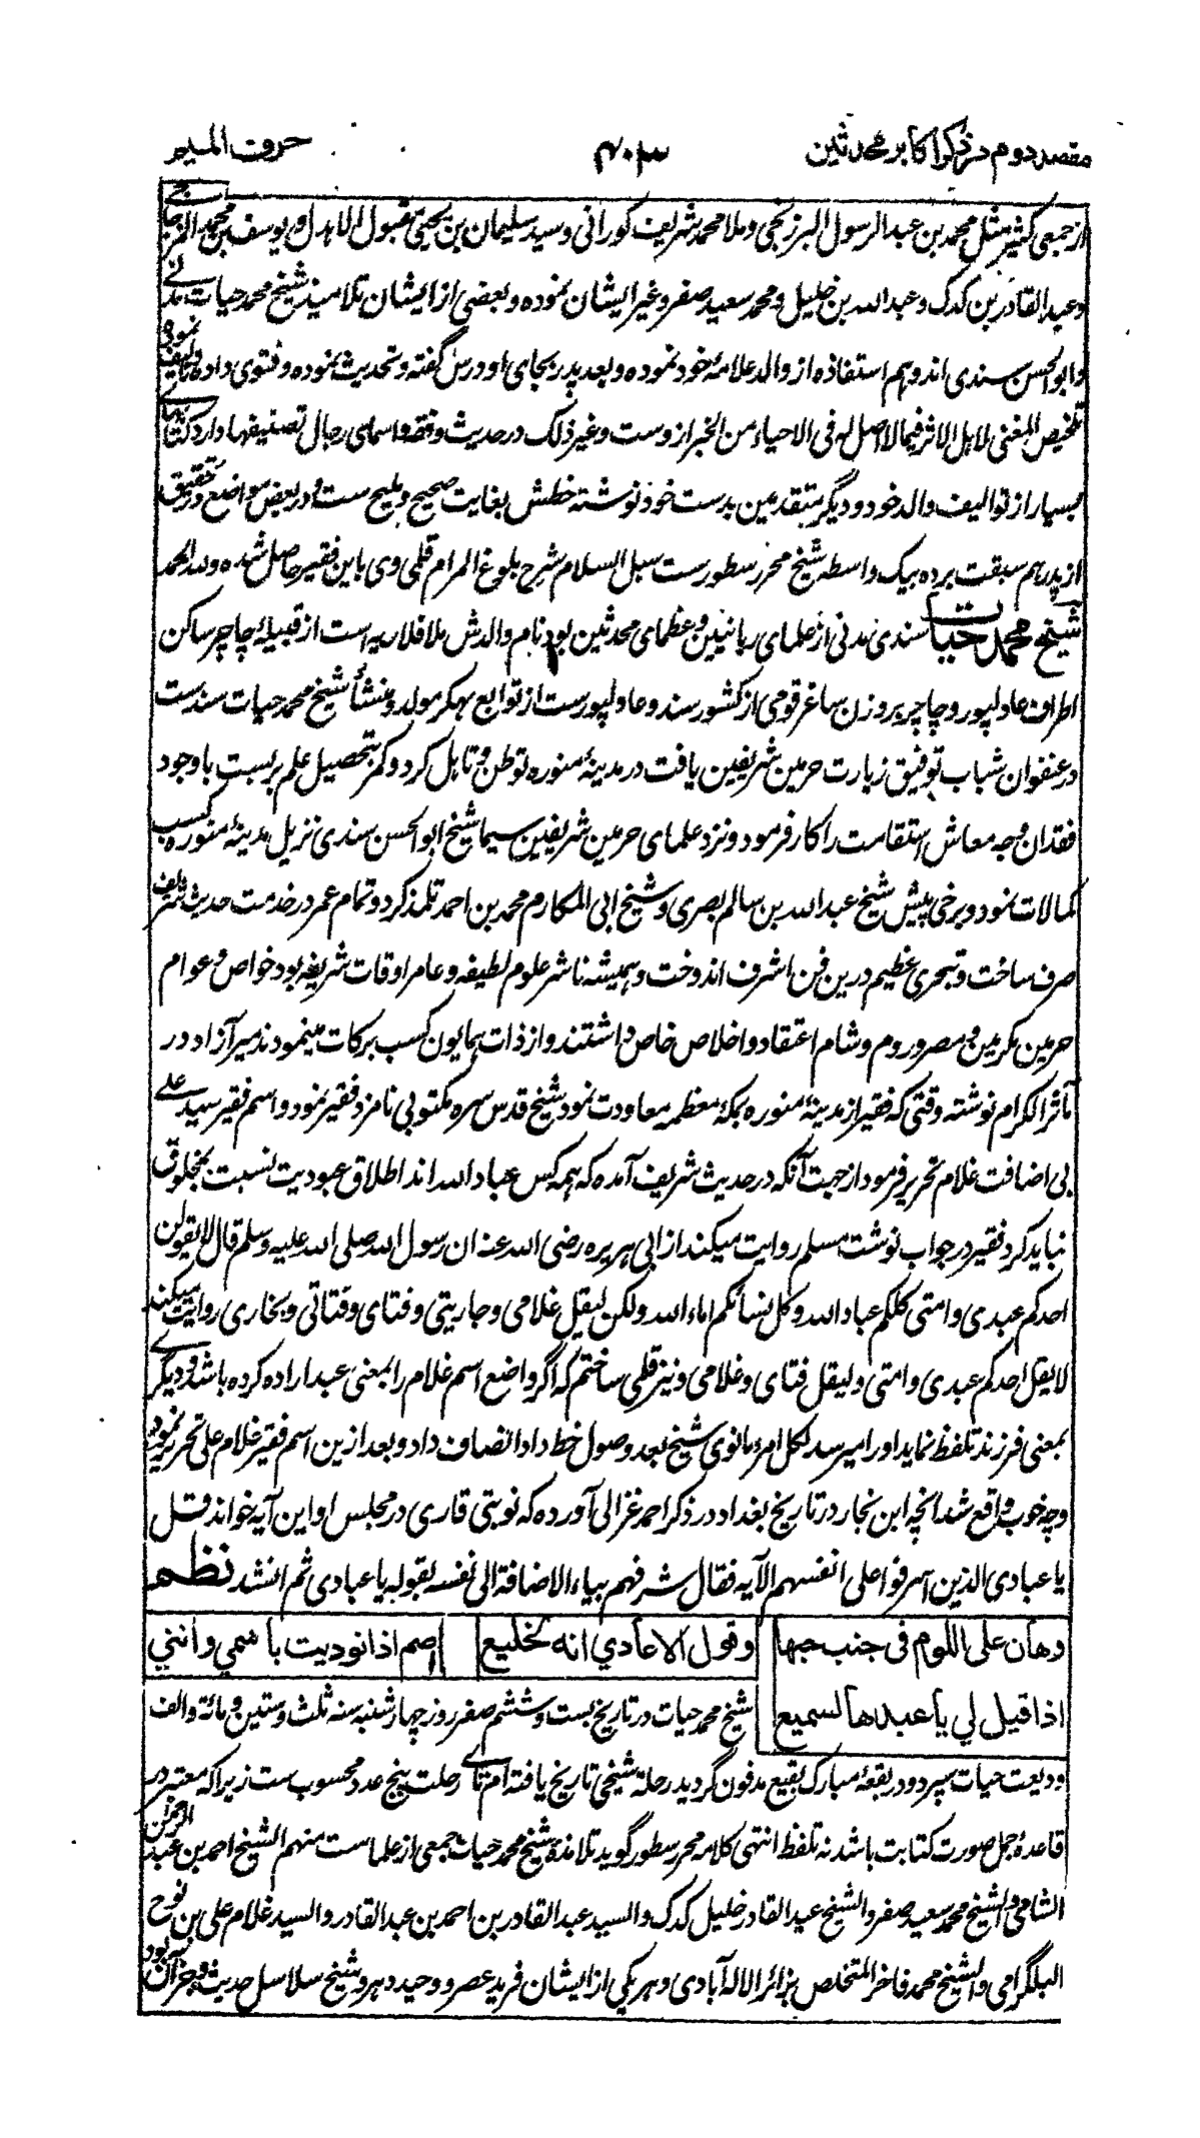 مقصد دوم در ذکر اکابر محدثین ۴۰۳ حرف المیم
از جمعی کثیر مثل محمد بن عبد الرسول البرزنجی و ملا محمد شریف کورانی و سید سلیمان بن یحیی مقبول الاهدل و یوسف بن محمد المزجاجے
و عبد القادر بن کدک و عبد الله بن خلیل و محمد سعید صفر و غیر ایشان نموده و بعضی از ایشان تلامیذ شیخ محمد حیات مدنے
و ابو الحسن سندی اند و هم استفاده از والد علامهٔ خود نموده و بعد پدر بجای او درس گفته و تحدیث نموده و فتوی داده تالیف نموده
تلخیص المغنی لاهل الاثر فیما لا اصل له فی الاحیاء من الخبر ازوست و غیر ذلک در حدیث و فقه و اسمای رجال تصنیفها دارد کتابهاے
بسیار از توالیف والد خود و دیگر متقدمین بدست خود نوشته خطش بغایت صحیح و ملیح ست و در بعض مواضع در تحقیق
از پدر هم سبقت برده بیک واسطه شیخ محرر سطور ست سبل السلام شرح بلوغ المرام قلمی وی باین فقیر حاصل شده و لله الحمد
شیخ محمد حیات سندی مدنی از علمای ربانیین و عظمای محدثین بود نام والدش ملا فلاریه است از قبیلهٔ چاچر ساکن
اطراف عادلپور و چاچر بر وزن ساغر قومی از کشور سند و عادلپور ست از توابع بهکر مولد و منشأ شیخ محمد حیات سند ست
در عنفوان شباب توفیق زیارت حرمین شریفین یافت در مدینهٔ منوره توطن و تاهل کرد و کمر بتحصیل علم بر بست با وجود
فقدان وجه معاش استقامت را کار فرمود و نزد علمای حرمین شریفین سیما شیخ ابو الحسن سندی نزیل مدینهٔ منوره کسب
کمالات نمود و برخی پیش شیخ عبد الله بن سالم بصری و شیخ ابی المکارم محمد بن احمد تلمذ کرد و تمام عمر در خدمت حدیث شریف
صرف ساخت و تبحری عظیم درین فن اشرف اندوخت و همیشه ناشر علوم لطیفه و عامر اوقات شریفه بود خواص و عوام
حرمین مکرمین و مصر و روم و شام اعتقاد و اخلاص خاص داشتند و از ذات همایون کسب برکات مینمودند میر آزاد در
مآثر الکرام نوشته وقتی که فقیر از مدینهٔ منوره بمکهٔ معظمه معاودت نمود شیخ قدس سره مکتوبی نامزد فقیر نمود و اسم فقیر سید علے
بی اضافت غلام تحریر فرمود از جهت آنکه در حدیث شریف آمده که همه کس عباد الله اند اطلاق عبودیت نسبت بمخلوق
نباید کرد فقیر در جواب نوشت مسلم روایت میکند از ابی هریره رضی الله عنه ان رسول الله صلی الله علیه و سلم قال لا یقولن
احدکم عبدی و امتی کلکم عباد الله و کل نسائکم اماء الله و لکن لیقل غلامی و جاریتی و فتای و فتاتی و بخاری روایت میکند
لا یقل احدکم عبدی و امتی و لیقل فتای و غلامی و نیز قلمی ساختم که اگر واضع اسم غلام را بمعنی عبد اراده کرده باشد و دیگرے
بمعنی فرزند تلفظ نماید او را میرسد لکل امرء ما نوی شیخ بعد وصول خط داد انصاف داد و بعد ازین اسم فقیر غلام علی تحریر نمود
و چه خوب واقع شد انچه ابن نجار در تاریخ بغداد در ذکر احمد غزالی آورده که نوبتی قاری در مجلس او این آیه خواند قل
یا عبادی الذین اسرفوا علی انفسهم الآیه فقال شرفهم بیاء الاضافة الی نفسه بقوله یا عبادی ثم انشد نظمـ
وهان علی اللوم فی جنب حبها وقول الاعادي انه لخليع اصم اذا نوديت باسمي وانني
اذا قیل لي يا عبدها لسميع شیخ محمد حیات در تاریخ بست و ششم صفر روز چهارشنبه سنه ثلث و ستین و مائة و الف
ودیعت حیات سپرد و در بقعهٔ مبارک بقیع مدفون گردید رحلة شیخی تاریخ یافته ام تاے رحلت پنج عدد محسوب ست زیرا که معتبر در
قاعدهٔ جمل صورت کتابت باشد نه تلفظ انتهی کلامه محرر سطور گوید تلامذهٔ شیخ محمد حیات جمعی از علماست منهم الشیخ احمد بن عبد الرحمن
الشامی و الشیخ محمد سعید صفر و الشیخ عبد القادر خلیل کدک و السید عبد القادر بن احمد بن عبد القادر و السید غلام علی بن نوح
البلگرامی و الشیخ محمد فاخر المتخلص بزائر الاله آبادی و هر یکی از ایشان فرید عصر و وحید دهر و شیخ سلاسل حدیث و جز آن بود